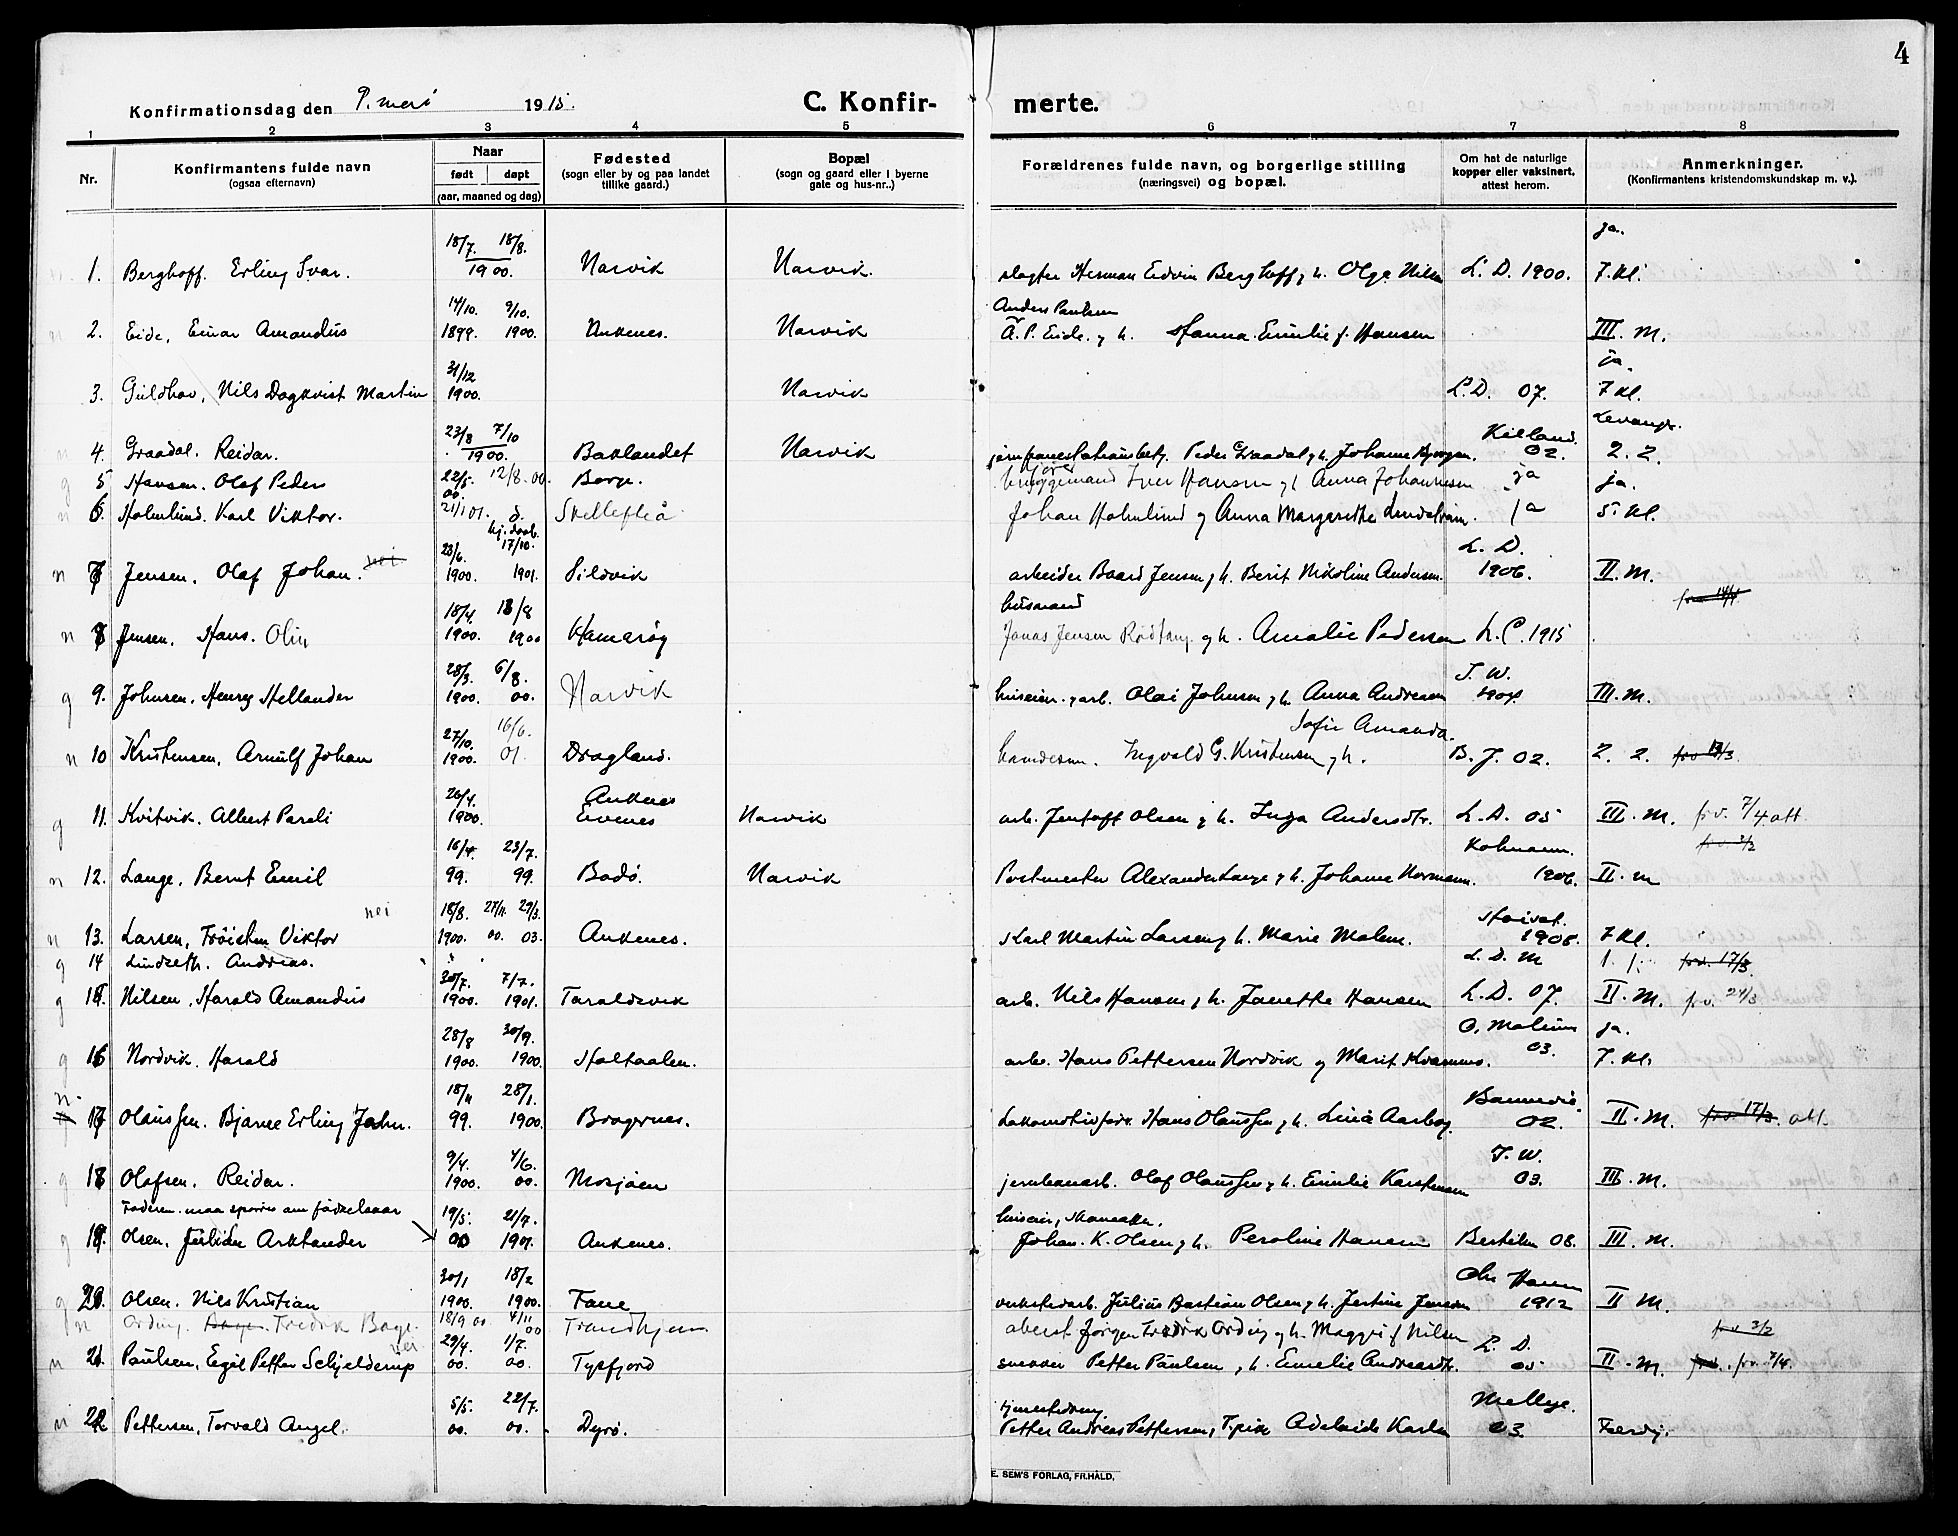 4
Konfirmationsdag den 9. mai 1915.
C. Konfir- merte.
1 2 3 4 5 6 7 8
Nr.
Konfirmantens fulde navn
(ogsaa efternavn)
Naar
født døpt
(aar, maaned og dag)
Fødested
(sogn eller by og paa landet
tillike gaard.)
Bopæl
(sogn og gaard eller i byerne
gate og hus-nr..)
Forældrenes fulde navn, og borgerlige stilling
(næringsvei) og bopæl.
Om hat de naturlige
kopper eller vaksinert,
attest herom.
Anmerkninger.
(Konfirmantens kristendomskundskap m. v.).
18/7. 18/8. ja.
1. Berghoff. Erling Ivar. 1900. Narvik Narvik. slagter Herman Edvin Berghoff, h. Olga Nilsen L. D. 1900. 7. Kl.
14/10. 9/10. Anders Paulsen
2. Eide, Einar Amandus 1899. 1900. Ankenes. Narvik A. P. Eide. g h. Hanna Emilie f. Hansen III. M.
31/12 ja.
3. Guldhav, Nils Dagkvist Martin 1900. Narvik L. D. 07. 7 Kl.
23/8 7/10 Kielland. Levanger.
4. Graadal. Reidar. 1900. Baklandet Narvik Peder Graadal g h. Johanne 02. 2. 2.
5 Hansen. Olaf Peder 22/5. 00. 12/8. 00. Borge. Iver Hansen g h Anna Johannesen ja ja.
n 6. Holmlund. Karl Viktor. 21/1 01. d. Skellefteå Johan Holmlund g Anna Margarethe Lundstrøm. ja 5. Kl.
hj. døpt. 23/6. 17/10. L. D.
n 7 Jensen. Olaf Johan. nei 1900. 1901. Sildvik arbeider Baard Jensen g h. Berit Nikoline Andersen. 1906. II. M.
18/4. 18/8 husmand prv. 14/4
n 8 Jensen. Hans. Olin 1900. 1900 Hamarøy Jonas Jensen g h. Amalie Pedersen L. C. 1915
28/3. 6/8. T. W.
g 9. Johnsen, Henry Hellander 1900. 00. Narvik huseier. g arb. Olai Johnsen g h. Anna Andresen 1904 III. M.
27/10. 16/6. Sofie Amanda.
n 10 Kristensen, Arnulf Johan 1900. 01. Dragland. handesm. Ingvald G. Kristensen g h. B. J. 02. 2. 2. prv 18/3.
26/4. Ankenes
g 11. Kvitvik. Albert Pareli 1900. Evenes Narvik arb. Jentoft Olsen g h. Inga Andersdtr. L. D. 05 III. M. prv. 7/4 att.
16/4. 23/7. Kolmann. prv. 3/2
n 12. Lange, Bernt Emil 99. 99. Bodø. Narvik Postmester Alexander Lange g h. Johanne Normann. 1906. II. m
nei 18/8. 27/11. 29/3.
n 13. Larsen, Trøisten Viktor 1900. 00. 03. Ankenes. Karl Martin Larsen g h. Marie Malene. 1908. 7 Kl.
g 14 Lindseth. Andreas. L. D. M 1. prv. 17/3.
30/7. 7/7.
g 15. Nilsen, Harald Amandus 1900. 1901. Taraldsvik arb. Nils Hansen g h. Janette Hansen L. D. 07. II. M. prv. 24/3
28/8 30/9. O. Malium ja.
g 16 Nordvik. Harald 1900. 1900. Holtaalen. arb. Hans Pettersen Nordvik g Marit Kvammo. 03. 7. Kl.
n. 18/11 28/1.
17 Olaussen. Bjarne Erling John. 99. 1900. Bragernes. Lokomotivfører. Hans Olaussen g h. Lina Aarbog. 02. II. M. prv. 17/3. att.
9/4. 4/6. T. W.
g 18 Olafsen. Reidar. 1900. 00. Mosjøen jernbanearb. Olaf Olaussen g h. Emilie Karstensen 03. III. M.
Faderen maa spørres om fødselsaar 19/5. 21/7. huseier, skomaker.
g 19. Olsen. Julian Arktander 00 1901. Ankenes. Johan. K. Olsen g h. Peroline Hansen Bertelsen 08. III. M.
30/1 18/2 Chr Hansen
g 20. Olsen. Nils Kristian 1900. 1900. Fane verkstedarb. Julius Bastian Olsen g h. Jertine Jensen 1912 II M.
n Ording. Fredrik Bage. 18/9 00 4/11 00 Trondhjem oberst Jørgen Fredrik Ording g h. Maggi f. Nilsen prv 3/2
nei 29/4. 1/7. L. D.
n 21. Paulsen, Egil Petter Schjelderup 00. 00. Tysfjord snekker Petter Paulsen g h. Emelie Andreasdtr. 05 II. M. prv. prv. 7/4.
5/5. 22/7.
n 22 Pettersen, Torvald Angel. 00. 00. Dyrø. Petter Andreas Pettersen, Adelaide Karla 03. Færdig.
E. SEM'S FORLAG, FR.HALD.